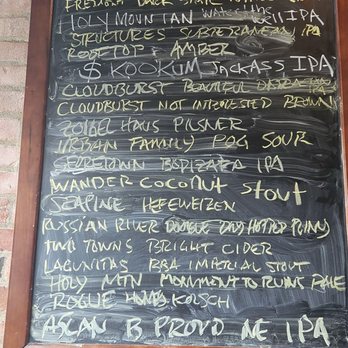 HOLY MOUNTAIN WATCH the Well IPA
STRUCTURES SUBTERRANEAN IPA
ROOFTOP AMBER
$ KOOKUM JACKASS IPA
CLOUDBURST BEAUTIFUL
CLOUDBURST NOT INTERESTED BROWN
ZOIBEL HAUS PILSNER
URBAN FAMILY POG SOUR
IPA
WANDER COCONUT STOUT
SEAPINE HEFEWEIZEN
RUSSIAN RIVER DOUBLE DRY HOPPED
TWO TOWNS BRIGHT CIDER
LAGUNITAS IMPERIAL STOUT
HOLY MTN MONUMENT TO RUINS PALE
ROGUE KOLSCH
ASLAN B PROUD NE IPA